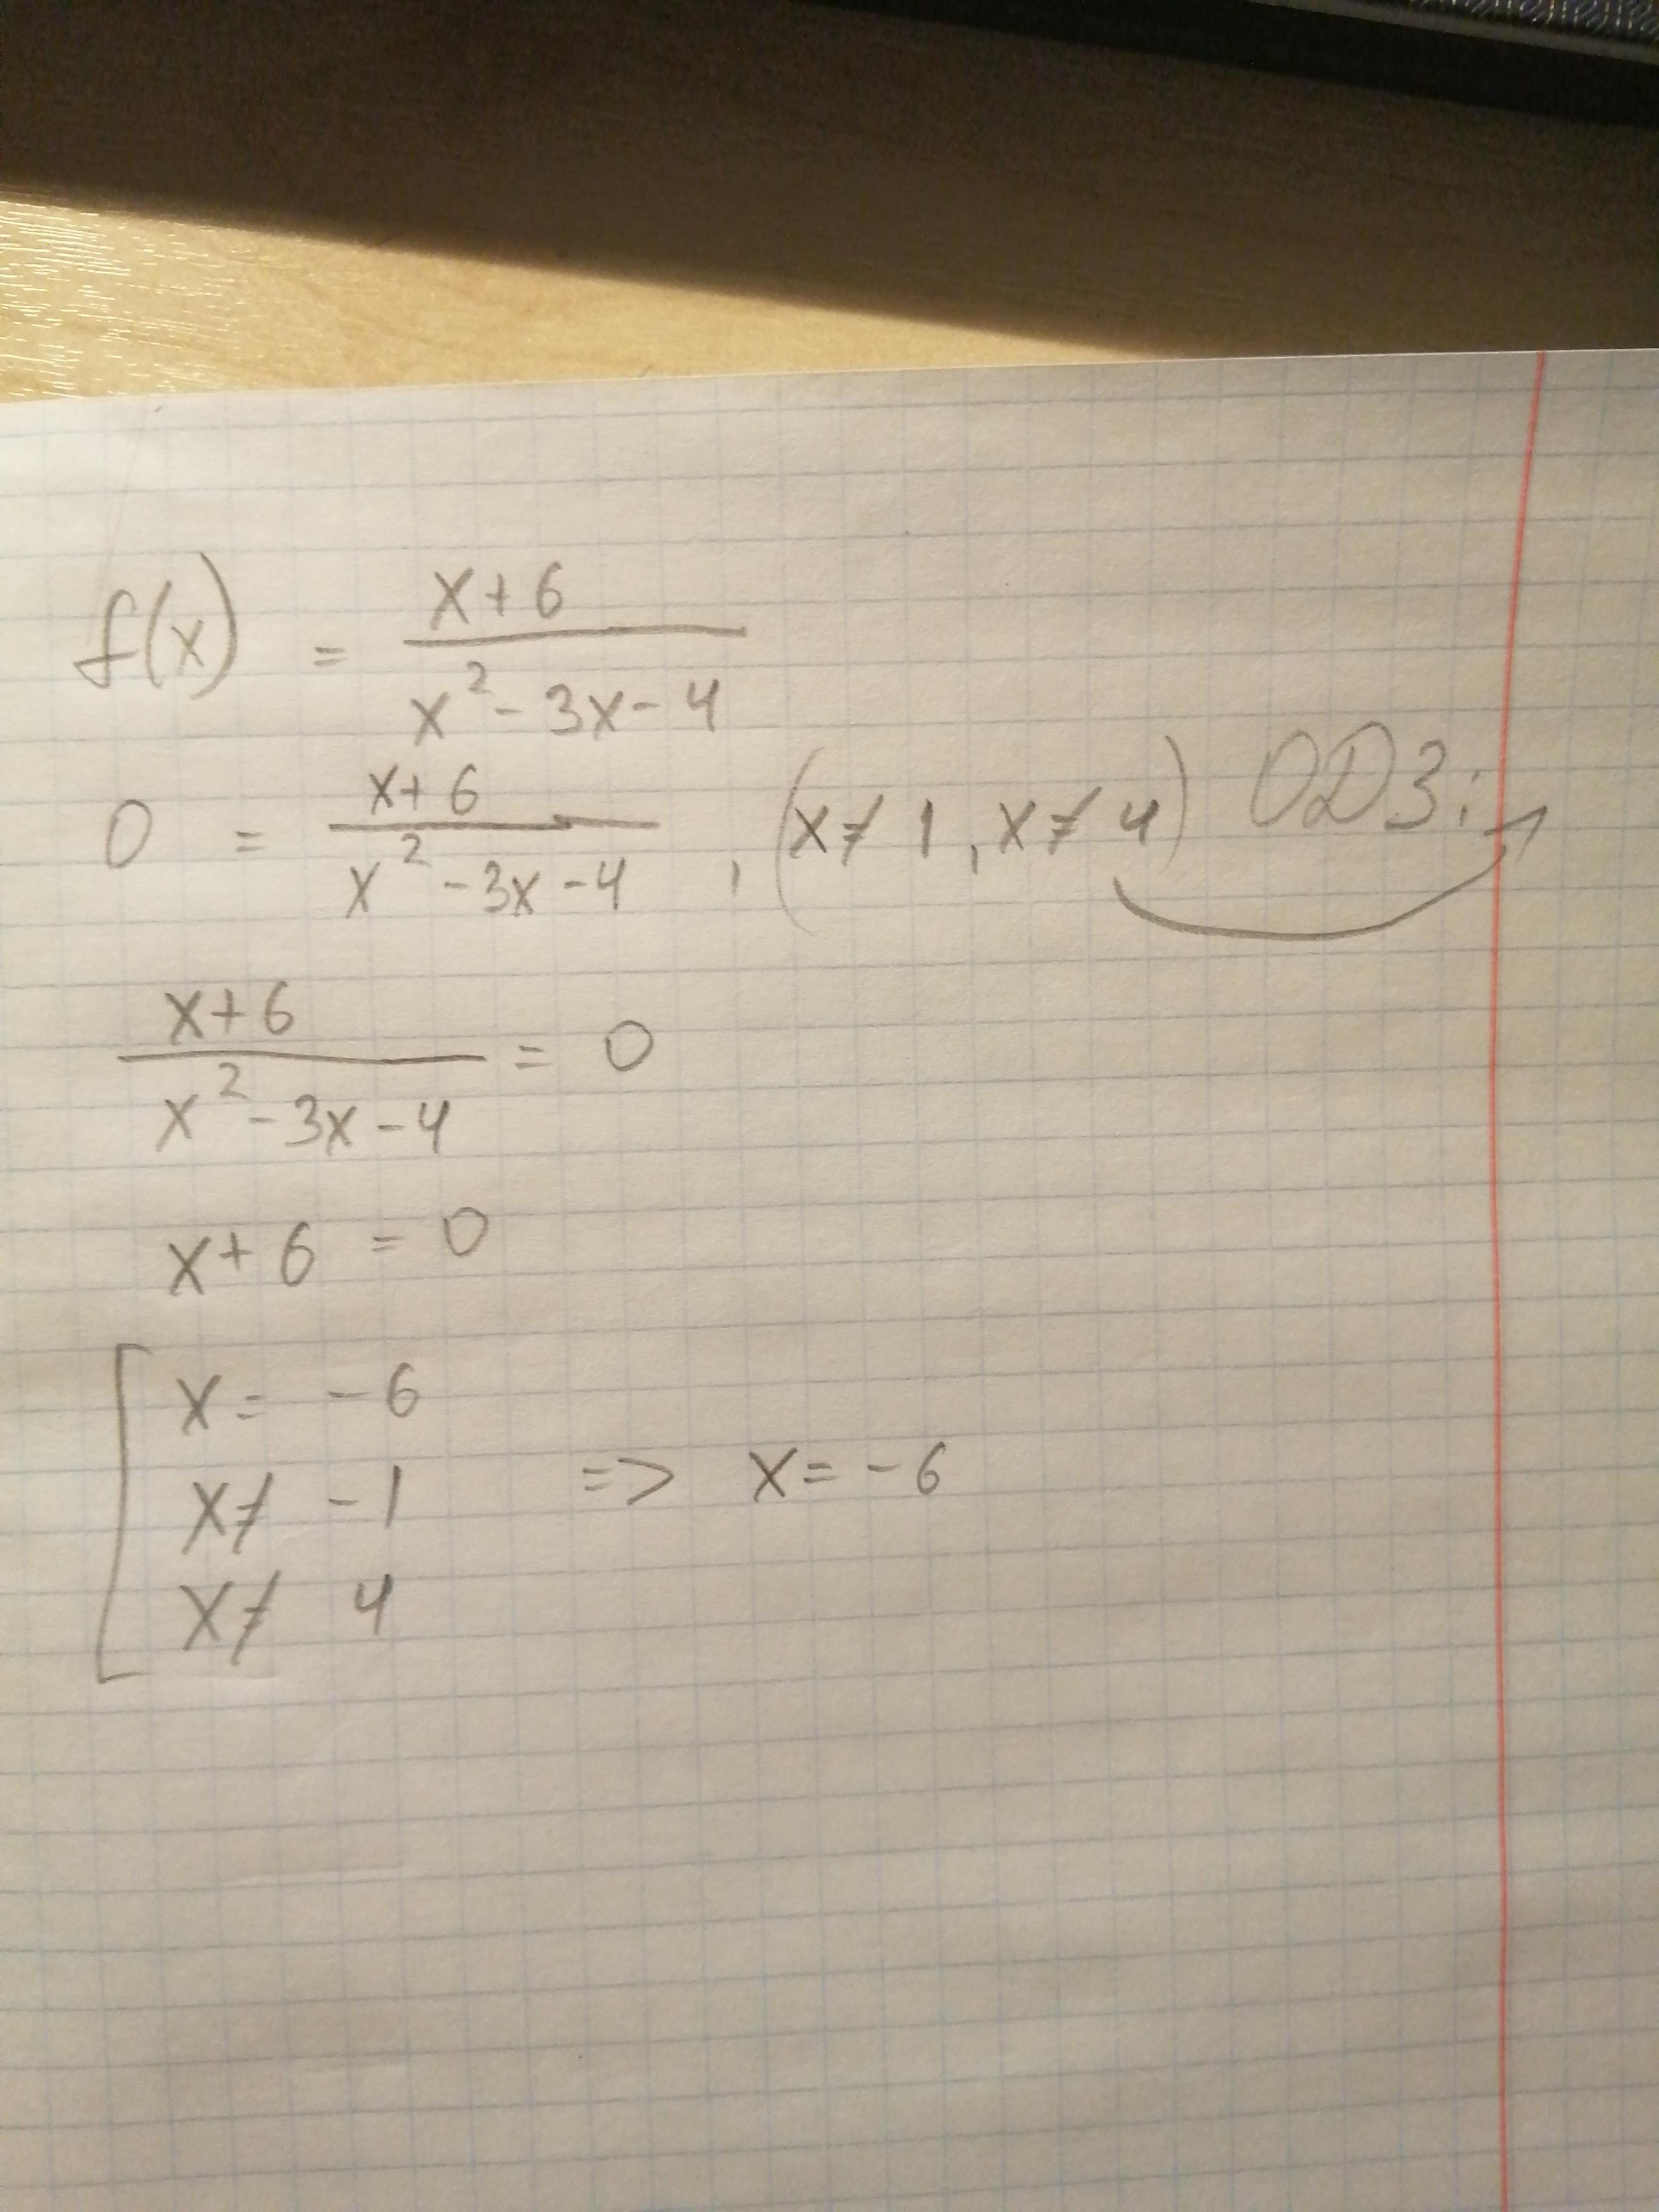 f(x) = (x+6)/(x² - 3x - 4)
0 = (x+6)/(x² - 3x - 4) , (x ≠ 1, x ≠ 4) ОДЗ:
(x+6)/(x² - 3x - 4) = 0
x + 6 = 0
[ x = -6
x ≠ -1 => x = -6
x ≠ 4